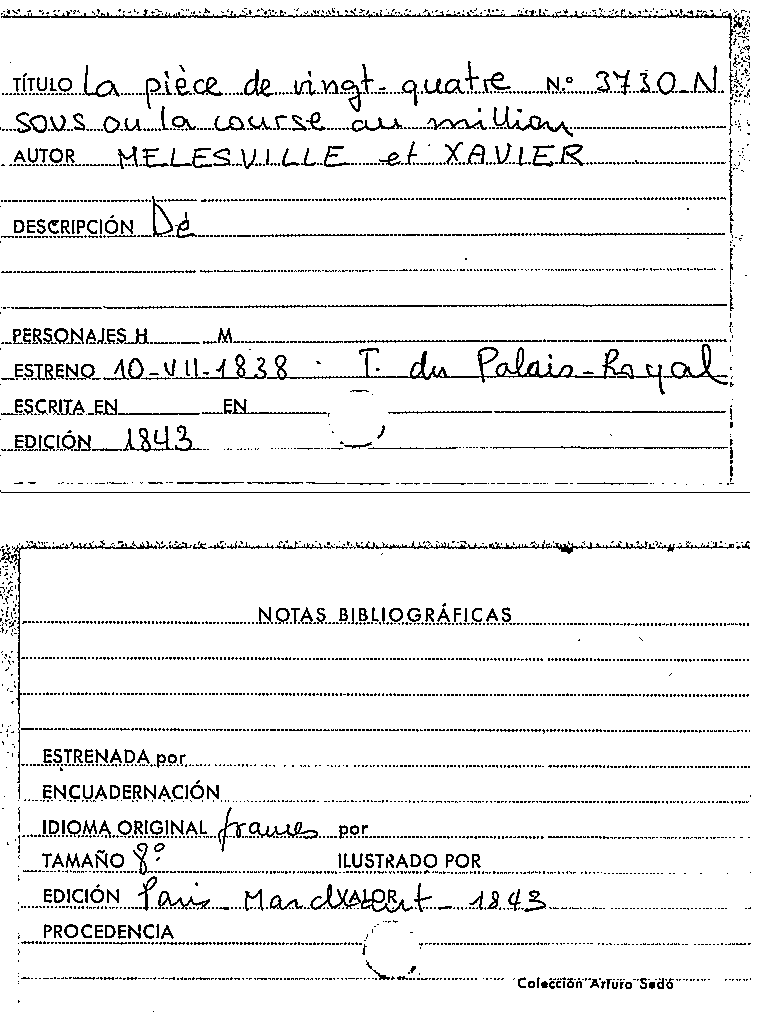 TÍTULO La pièce de vingt-quatre N.º 3730-N
sous ou la course au million
AUTOR MELESVILLE et XAVIER
DESCRIPCIÓN Dé
PERSONAJES H M
ESTRENO 10-VII-1838 - T. du Palais-Royal
ESCRITA EN EN
EDICIÓN 1843
NOTAS BIBLIOGRÁFICAS
ESTRENADA por
ENCUADERNACIÓN
IDIOMA ORIGINAL frances por
TAMAÑO 8º ILUSTRADO POR
EDICIÓN Paris - VALOR - 1843
PROCEDENCIA
Colección Arturo Sedó